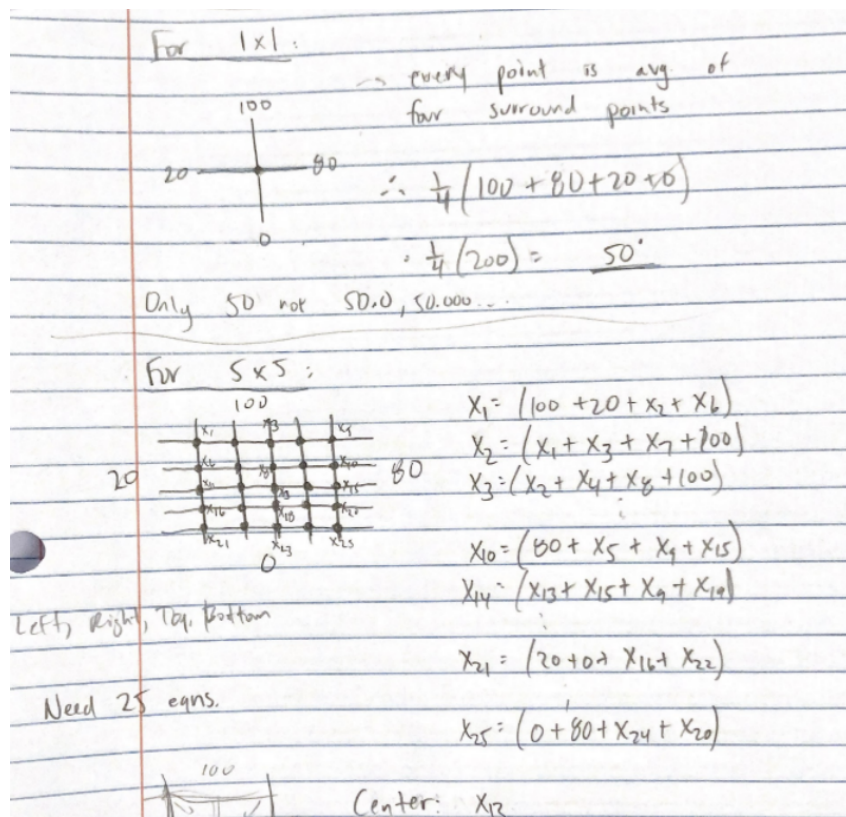 For 1x1:
→ every point is avg. of
four surround points
100
20 80
0
∴ 1/4 (100 + 80 + 20 + 0)
∴ 1/4 (200) = 50°
Only 50 not 50.0, 50.000...
For 5x5:
100
x₁ x₃ x₅
x₆ x₈ x₁₀
20 80
x₁₁ x₁₃ x₁₅
x₁₆ x₁₈ x₂₀
x₂₁ x₂₃ x₂₅
0
x₁ = (100 + 20 + x₂ + x₆)
x₂ = (x₁ + x₃ + x₇ + 100)
x₃ = (x₂ + x₄ + x₈ + 100)
⋮
x₁₀ = (80 + x₅ + x₉ + x₁₅)
x₁₄ = (x₁₃ + x₁₅ + x₉ + x₁₉)
⋮
x₂₁ = (20 + 0 + x₁₆ + x₂₂)
⋮
x₂₅ = (0 + 80 + x₂₄ + x₂₀)
Left, Right, Top, Bottom
Need 25 eqns.
100
Center: x₁₃